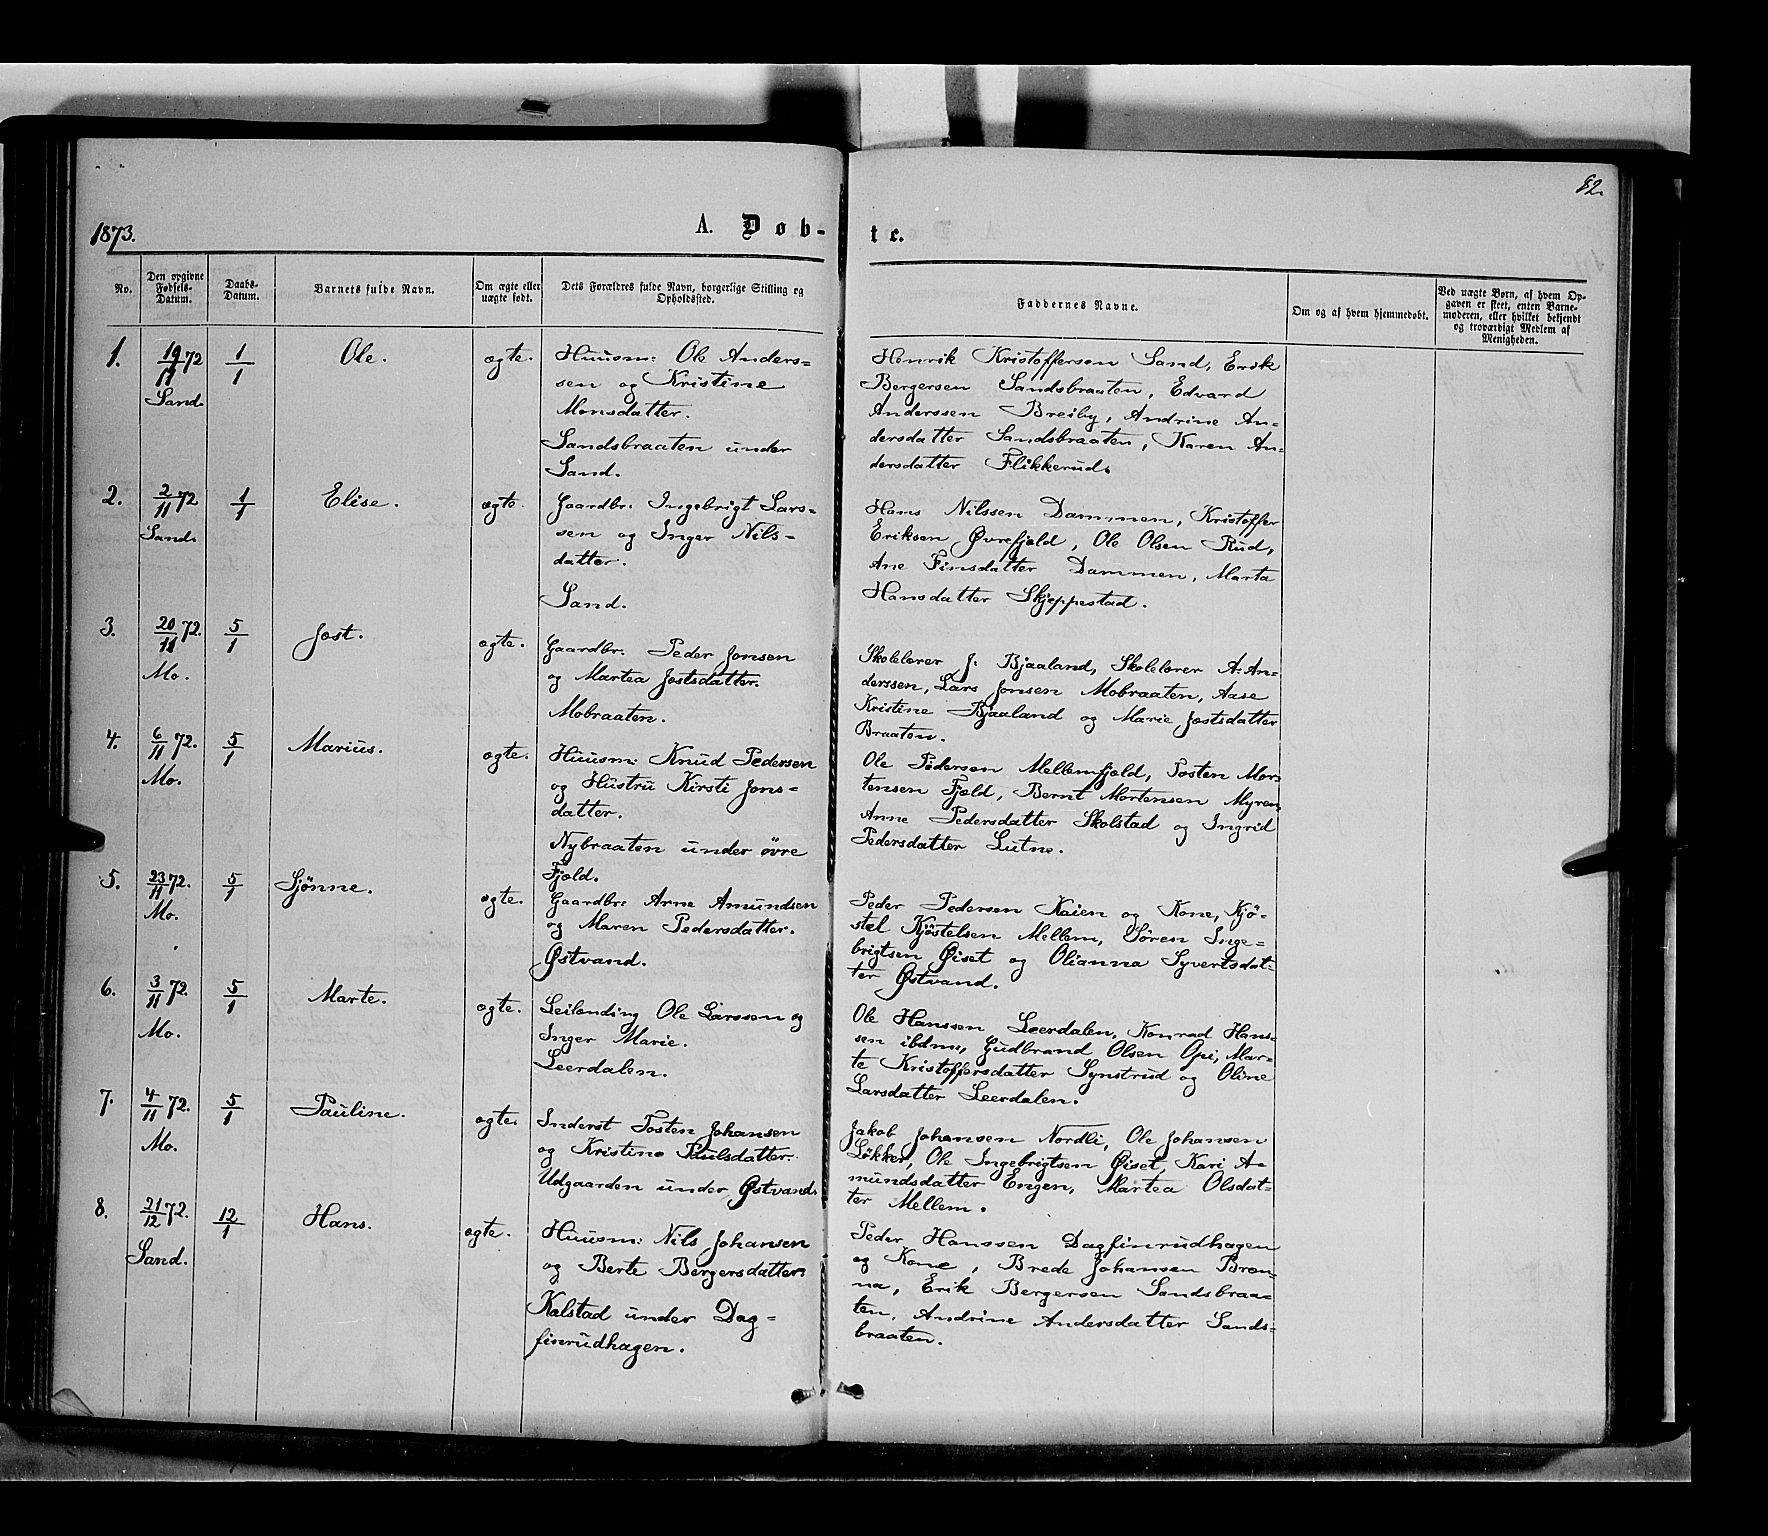 82.
1873.
A. Døb-
te.
No.
Den opgivne
Fødsels-
Datum.
Daabs-
Datum.
Barnets fulde Navn.
Om ægte eller
uægte født.
Dets Forældres fulde Navn, borgerlige Stilling og
Opholdssted.
Faddernes Navne.
Om og af hvem hjemmedøbt.
Ved uægte Børn, af hvem Op-
gaven er skeet, enten Barne-
moderen, eller hvilket bekjendt
og troværdigt Medlem af
Menigheden.
1.
19/11 72
Sand.
1/1
Ole.
ægte.
Huusm: Ole Anders-
sen og Kristine
Monsdatter.
Sandsbraaten under
Sand.
Henrik Kristoffersen Sand, Erik
Bergersen Sandsbraaten, Edvard
Anderssen Breiby, Andrine An-
dersdatter Sandsbraaten, Karen An-
dersdatter Flikkerud.
2.
2/11 72
Sand.
1/1
Elise.
ægte.
Gaardbr: Ingebrigt Lars-
sen og Inger Nils-
datter.
Sand.
Hans Nilssen Dammen, Kristoffer
Eriksen Øvrefjeld, Ole Olsen Rud,
Ane Finsdatter Dammen, Marta
Hansdatter Skjeppestad.
3.
20/11 72.
Mo.
5/1
Jost.
ægte.
Gaardbr: Peder Jonsen
og Martea Jostsdatter.
Mobraaten.
Skolelærer J: Bjaaland, Skolelærer A: An-
derssen, Lars Jonsen Mobraaten, Aase
Kristine Bjaaland og Marie Jostsdatter
Braaten.
4.
6/11 72.
Mo.
5/1
Marius.
ægte.
Huusm: Knud Pedersen
og Hustru Kirsti Jons-
datter.
Nybraaten under øvre
Fjeld.
Ole Pedersen Mellemfjeld, Tosten Mor-
tensen Fjeld, Bernt Mortensen Myren,
Anne Pedersdatter Skolstad og Ingrid
Pedersdatter Lutne.
5.
23/11 72.
Mo.
5/1
Sjønne.
ægte.
Gaardbr: Arne Amundsen
og Maren Pedersdatter.
Østvand.
Peder Pedersen Kaien og Kone, Kjø-
stel Kjøstelsen Mellem, Søren Inge-
brigtsen Øiset og Olianna Syvertsdat-
ter Østvand.
6.
3/11 72.
Mo.
5/1
Marte.
ægte.
Leilending Ole Larssen og
Inger Marie.
Leerdalen.
Ole Hanssen Leerdalen, Konrad Hans-
sen ibdm, Gudbrand Olsen Opi, Mar-
te Kristoffersdatter Synstrud og Oline
Larsdatter Leerdalen.
7.
4/11 72.
Mo.
5/1
Pauline.
ægte.
Inderst Tosten Johansen
og Kristine Paulsdatter.
Udgaarden under Østvand.
Jakob Johansen Nordli, Ole Johansen
Løkker, Ole Ingebrigtsen Øiset, Kari A-
mundsdatter Engen, Martea Olsdat-
ter Mellem.
8.
21/12 72.
Sand.
12/1
Hans.
ægte.
Huusm: Nils Johansen
og Berte Bergersdatter.
Kalstad under Dag-
finrudhagen.
Peder Hanssen Dagfinrudhagen
og Kone, Brede Johansen Bræn-
na, Erik Bergersen Sandsbraa-
ten, Andrine Andersdatter Sands-
braaten.